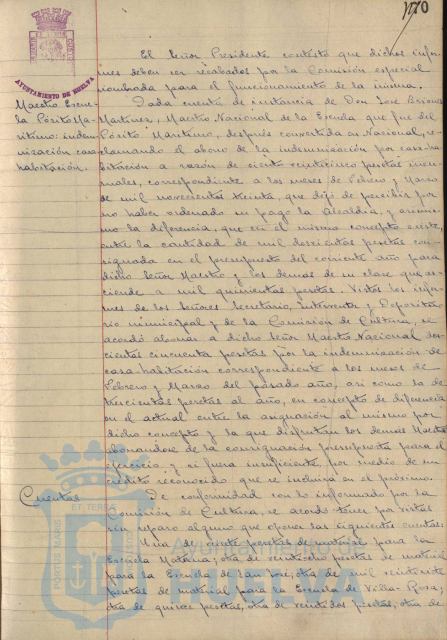 170
AYUNTAMIENTO DE HUELVA
El Señor Presidente contestó que dichos infor-
mes deben ser recabados por la Comisión especial
nombrada para el funcionamiento de la misma.
Maestro Escue-
la Pósito Ma-
rítimo: indem-
nización casa
habitación.
Dada cuenta de instancia de Don José
Martínez, Maestro Nacional de la Escuela que fué del
Pósito Marítimo, después convertida en Nacional, re-
clamando el abono de la indemnización por casa-ha-
bitación a razón de ciento veinticinco pesetas men-
suales, correspondiente a los meses de Febrero y Marzo
de mil novecientos treinta, que dejó de percibir por
no haber ordenado su pago la Alcaldía, y asimis-
mo la diferencia, que en el mismo concepto existe,
entre la cantidad de mil doscientas pesetas con-
signada en el presupuesto del corriente año para
dicho Señor Maestro y los demas de su clase que as-
ciende a mil quinientas pesetas. Vistos los infor-
mes de los Señores Secretario, Interventor y Deposita-
rio municipal y de la Comisión de Cultura, se
acordó abonar a dicho Señor Maestro Nacional dos-
cientas cincuenta pesetas por la indemnización de
casa-habitación correspondiente a los meses de
Febrero y Marzo del pasado año, así como la de
trescientas pesetas al año, en concepto de diferencia
en el actual entre la asignación al mismo por
dicho concepto y la que disfrutan los demas Maestros
abonandose de la consignación presupuesta para el
ejercicio y si fuera insuficiente, por medio de un
crédito reconocido que se incluirá en el próximo.
Cuentas
De conformidad con lo informado por la
Comisión de Cultura, se acordó tener por vistas
sin reparo alguno que oponer las siguientes cuentas:
Una de siete pesetas de material para la
Escuela; otra de veintiocho pesetas de material
para la Escuela de San José; otra de mil
pesetas de material para la Escuela de Villa-Rosa;
otra de quince pesetas, otra de veintidos pesetas, otra de